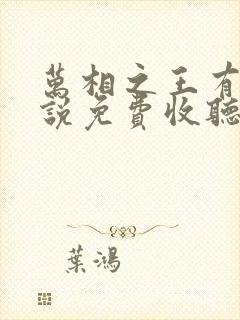 萬相之王有
說免費收聽
葉鴻